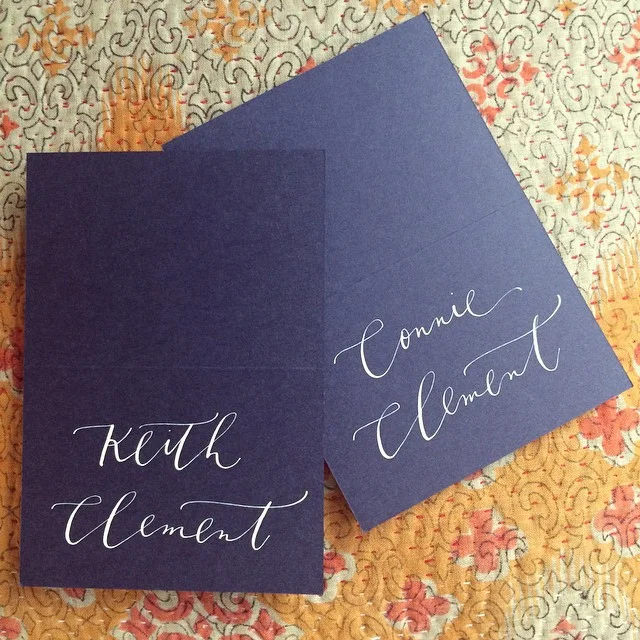 Keith
Clement
Connie
Clement